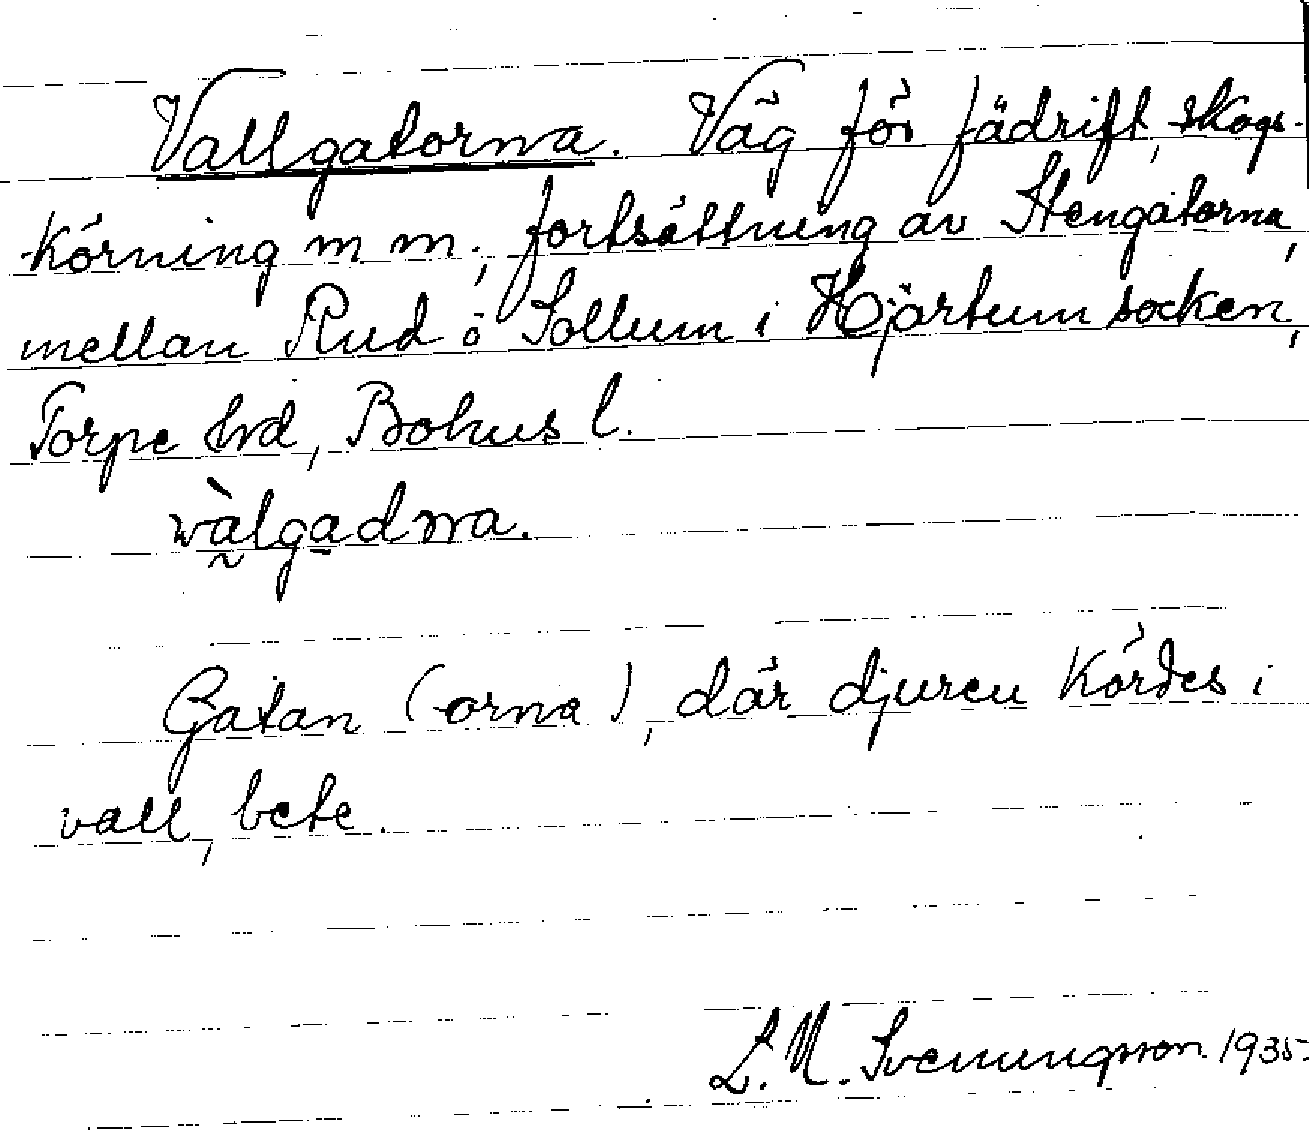 Vallgatorna. Väg för fädrift, skogs-
körning m m, fortsättning av Stengatorna,
mellan Rud o Sollum i Hjärtum socken,
Torpe hrd, Bohus l.
wàlgadnna.
Gatan (-orna), där djuren kördes i
vall, bete.
L. N. Svenungsson 1935.